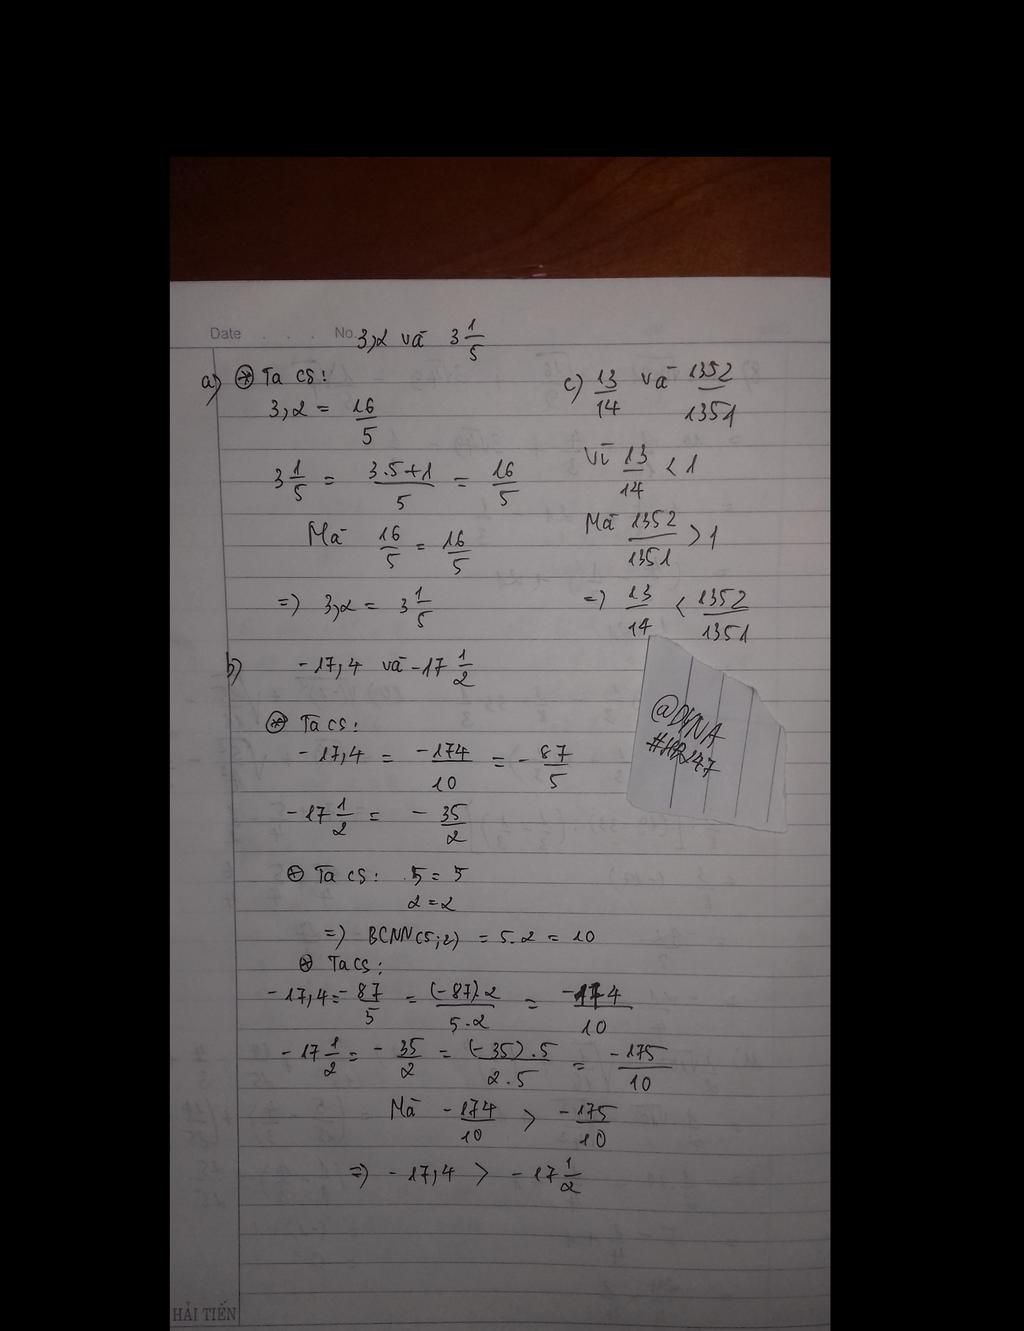 Date . . . . No.
3,2 và 3 1/5
a) ⊛ Ta có:
3,2 = 16/5
3 1/5 = (3.5+1)/5 = 16/5
Mà 16/5 = 16/5
=) 3,2 = 3 1/5
b) -17,4 và -17 1/2
⊛ Ta có:
-17,4 = -174/10 = -87/5
-17 1/2 = -35/2
⊛ Ta có: 5 = 5
2 = 2
=) BCNN(5;2) = 5.2 = 10
⊛ Ta có:
-17,4 = -87/5 = (-87).2/5.2 = -174/10
-17 1/2 = -35/2 = (-35).5/2.5 = -175/10
Mà -174/10 > -175/10
=) -17,4 > -17 1/2
c) 13/14 và 1352/1351
Vì 13/14 < 1
Mà 1352/1351 > 1
=) 13/14 < 1352/1351
HẢI TIẾN